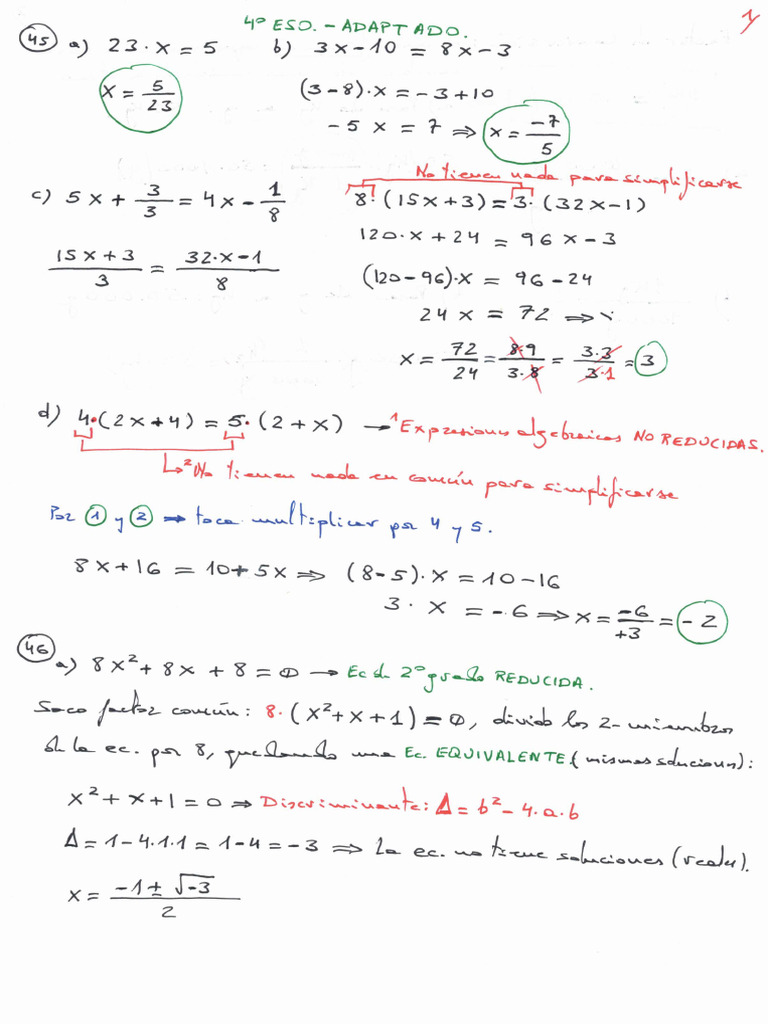 4º ESO. - ADAPTADO.
1
45 a) 23·x = 5
x = 5/23
b) 3x-10 = 8x-3
(3-8)·x = -3+10
-5 x = 7 ⇒ x = -7/5
c) 5x + 3/3 = 4x - 1/8
(15x+3)/3 = (32·x-1)/8
No tienen nada para simplificarse
8·(15x+3) = 3·(32x-1)
120·x + 24 = 96x - 3
(120-96)·x = 96-24
24 x = 72 ⇒
x = 72/24 = 8·9/3·8 = 3·3/3·1 = 3
d) 4·(2x+4) = 5·(2+x) → ¹Expresiones algebraicas NO REDUCIDAS.
↳ ²No tienen nada en común para simplificarse
Por 1 y 2 → toca multiplicar por 4 y 5.
8x+16 = 10+5x ⇒ (8-5)·x = 10-16
3· x = -6 ⇒ x = -6/+3 = -2
46 a) 8x²+8x+8=0 → Ec de 2º grado REDUCIDA.
Saco factor común: 8·(x²+x+1)=0, divido los 2 miembros
de la ec. por 8, quedando una Ec. EQUIVALENTE (mismas soluciones):
x²+x+1=0 ⇒ Discriminante: Δ=b²-4·a·b
Δ=1-4·1·1=1-4=-3 ⇒ La ec. no tiene soluciones (reales).
x = (-1±√-3)/2